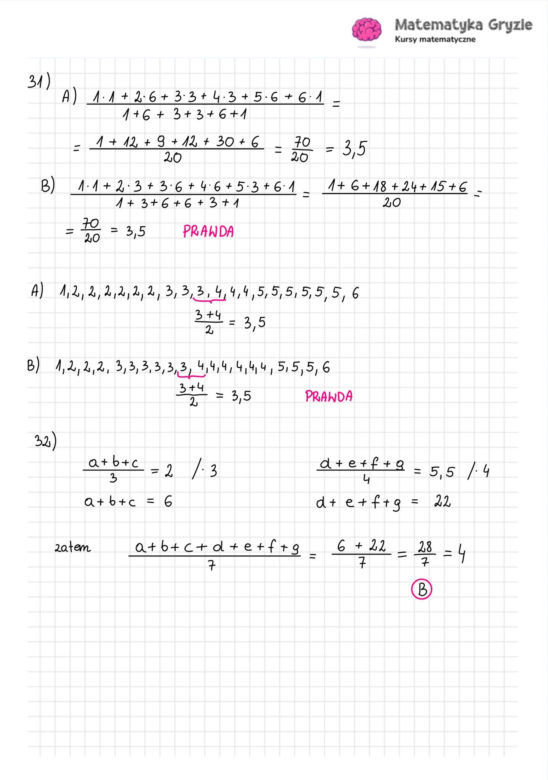 Matematyka Gryzie
Kursy matematyczne
31)
A) (1·1 + 2·6 + 3·3 + 4·3 + 5·6 + 6·1)/(1+6 + 3+3+6+1) =
= (1 + 12 + 9 + 12 + 30 + 6)/20 = 70/20 = 3,5
B) (1·1 + 2·3 + 3·6 + 4·6 + 5·3 + 6·1)/(1 + 3 + 6 + 6 + 3 + 1) = (1 + 6 + 18 + 24 + 15 + 6)/20 =
= 70/20 = 3,5 PRAWDA
A) 1, 2, 2, 2, 2, 2, 2, 3, 3, 3, 4, 4, 4, 5, 5, 5, 5, 5, 5, 6
(3+4)/2 = 3,5
B) 1, 2, 2, 2, 3, 3, 3, 3, 3, 3, 4, 4, 4, 4, 4, 4, 5, 5, 5, 6
(3+4)/2 = 3,5 PRAWDA
32)
(a+b+c)/3 = 2 /·3 (d+e+f+g)/4 = 5,5 /·4
a+b+c = 6 d+e+f+g = 22
zatem (a+b+c+d+e+f+g)/7 = (6 + 22)/7 = 28/7 = 4
B